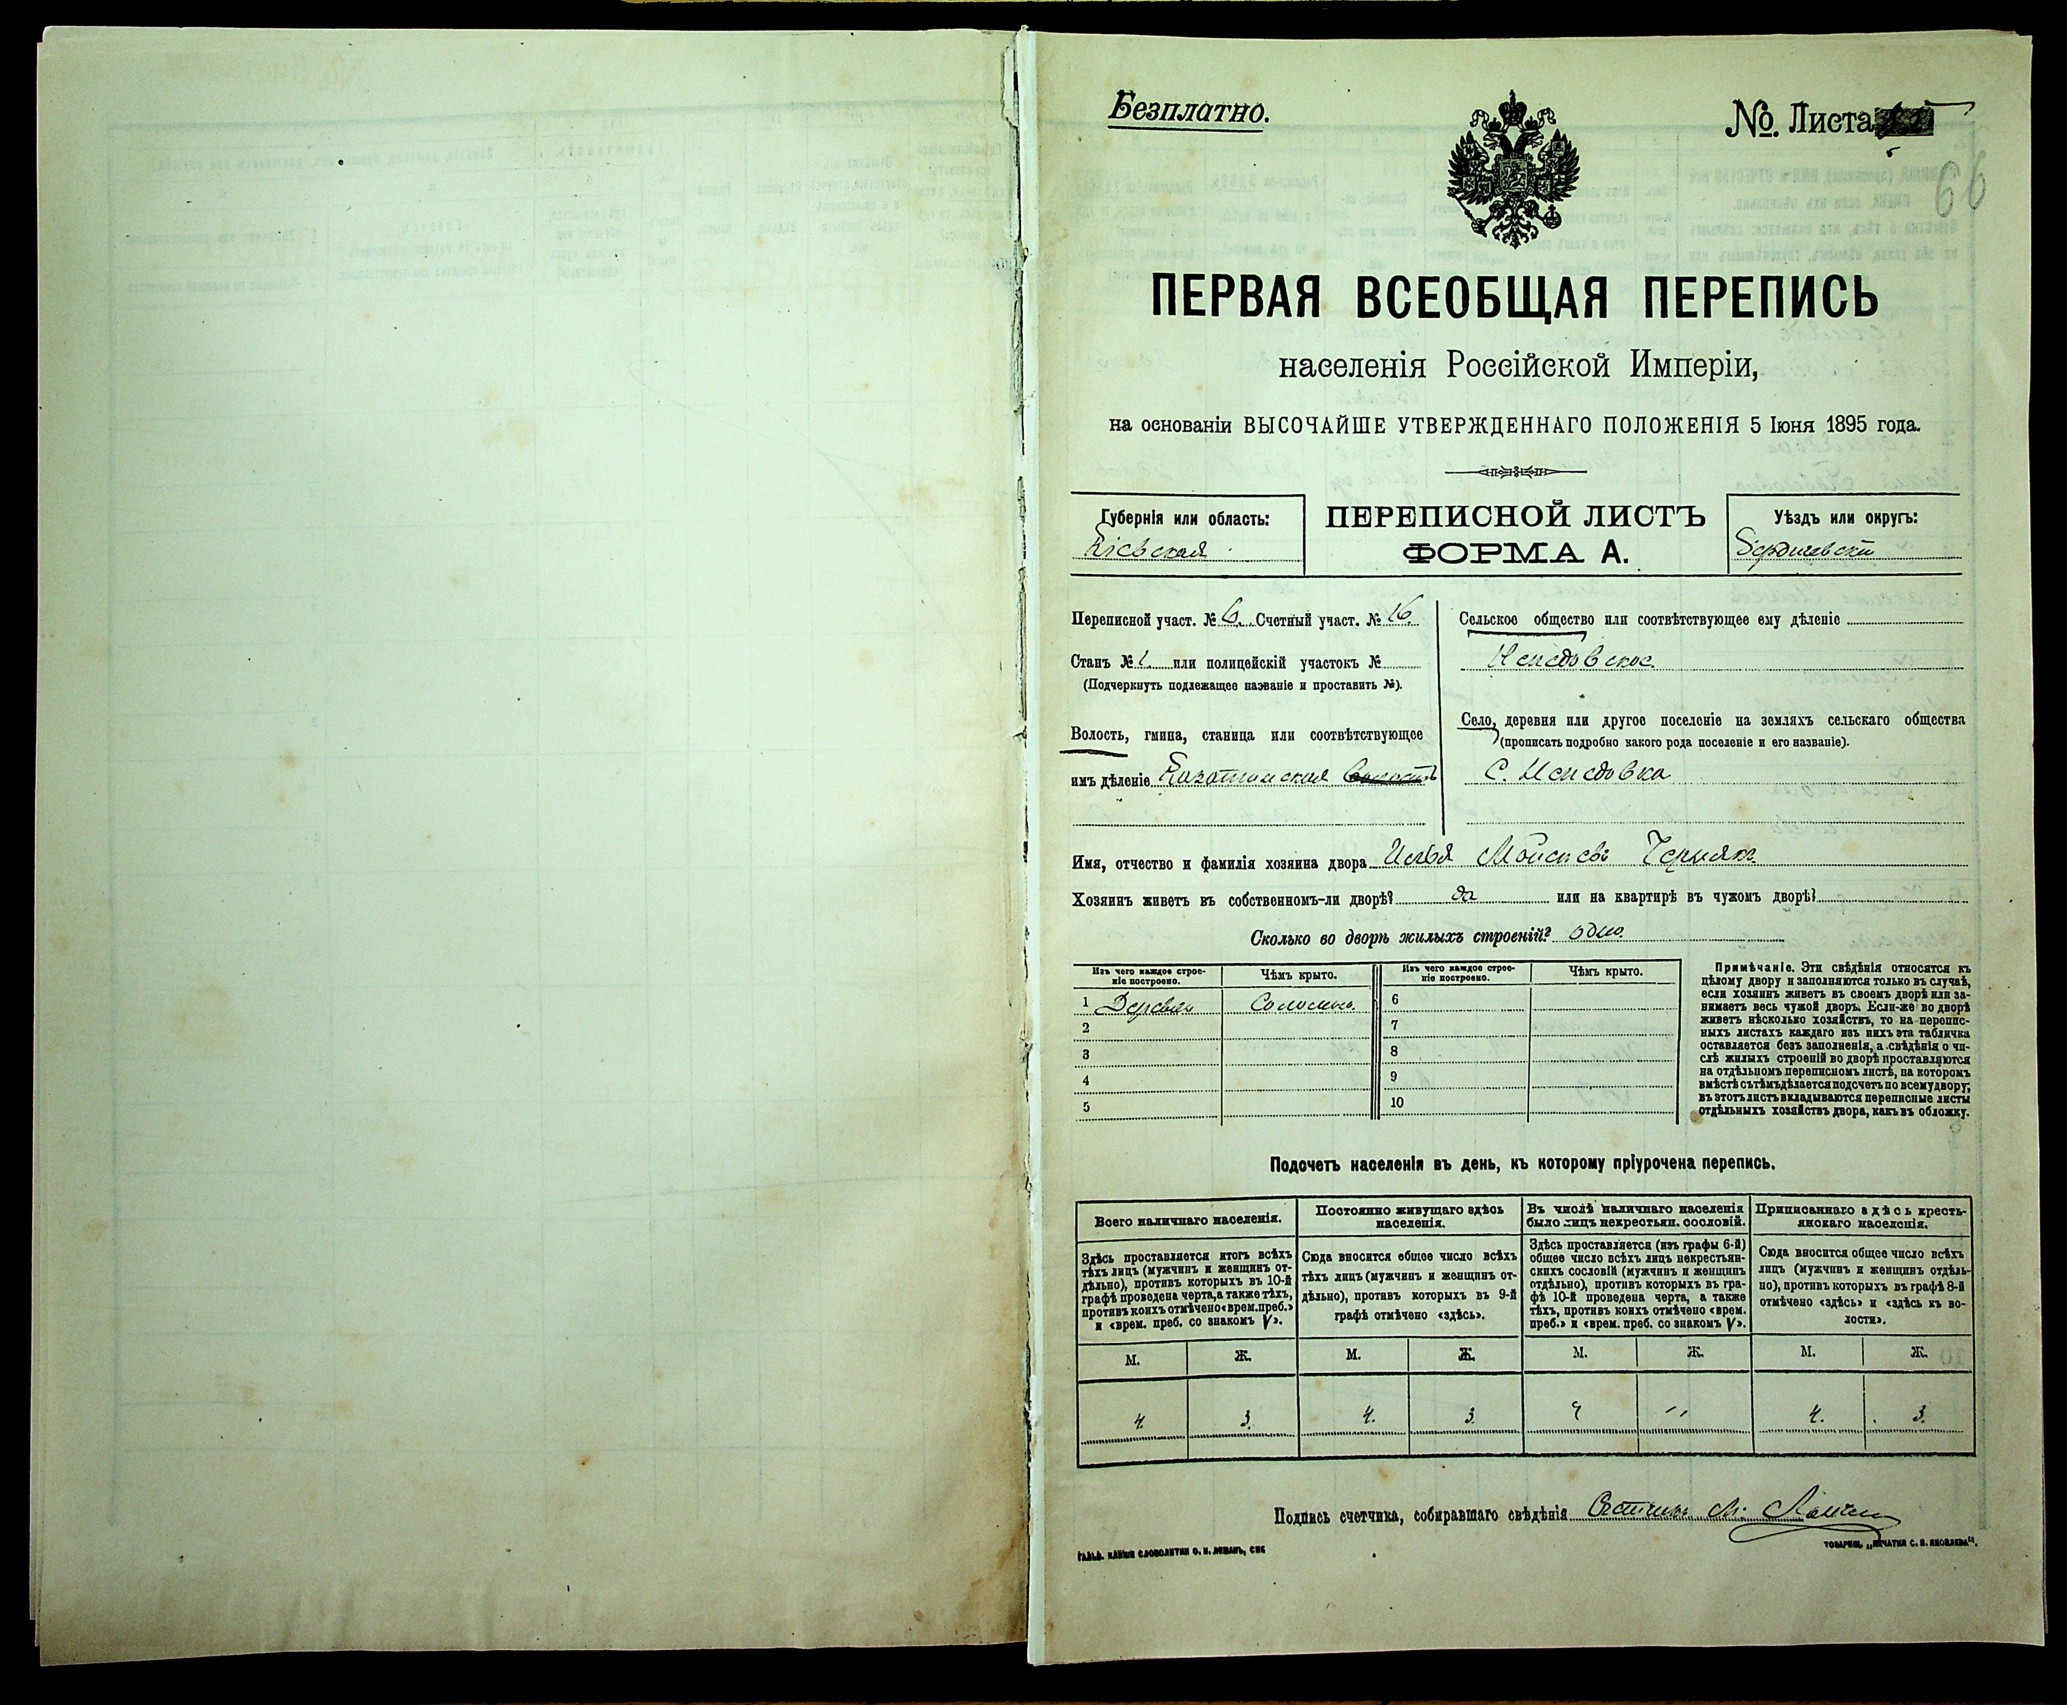 Безплатно.
№. Листа
66
ПЕРВАЯ ВСЕОБЩАЯ ПЕРЕПИСЬ
населенія Россійской Имперіи,
на основаніи ВЫСОЧАЙШЕ УТВЕРЖДЕННАГО ПОЛОЖЕНІЯ 5 Іюня 1895 года.
Губернія или область:
Кіевская
ПЕРЕПИСНОЙ ЛИСТЪ
ФОРМА А.
Уѣздъ или округъ:
Бердичевскій
Переписной участ. № 6. Счетный участ. № 16.
Станъ № 1. или полицейскій участокъ №
(Подчеркнуть подлежащее названіе и проставить №).
Волость, гмина, станица или соотвѣтствующее
имъ дѣленіе Казатинская волость
Сельское общество или соотвѣтствующее ему дѣленіе
Село, деревня или другое поселеніе на земляхъ сельскаго общества
(прописать подробно какого рода поселеніе и его названіе).
С.
Имя, отчество и фамилія хозяина двора Илья Мойсеевъ Чернякъ
Хозяинъ живетъ въ собственномъ-ли дворѣ? да или на квартирѣ въ чужомъ дворѣ?
Сколько во дворѣ жилыхъ строеній? одно.
Изъ чего каждое строе-
ніе построено.
Чѣмъ крыто.
Изъ чего каждое строе-
ніе построено.
Чѣмъ крыто.
1 Деревян Соломою. 6
2 7
3 8
4 9
5 10
Примѣчаніе. Эти свѣдѣнія относятся къ
цѣлому двору и заполняются только въ случаѣ,
если хозяинъ живетъ въ своемъ дворѣ или за-
нимаетъ весь чужой дворъ. Если-же во дворѣ
живетъ нѣсколько хозяйствъ, то на перепис-
ныхъ листахъ каждаго изъ нихъ эта табличка
оставляется безъ заполненія, а свѣдѣнія о чи-
слѣ жилыхъ строеній во дворѣ проставляются
на отдѣльномъ переписномъ листѣ, на которомъ
вмѣстѣ съ тѣмъ дѣлается подсчетъ по всему двору;
въ этотъ листъ вкладываются переписные листы
отдѣльныхъ хозяйствъ двора, какъ въ обложку.
Подсчетъ населенія въ день, къ которому пріурочена перепись.
Всего наличнаго населенія.
Постоянно живущаго здѣсь
населенія.
Въ числѣ наличнаго населенія
было лицъ некрестьян. сословій.
Приписаннаго здѣсь кресть-
янскаго населенія.
Здѣсь проставляется итогъ всѣхъ
тѣхъ лицъ (мужчинъ и женщинъ от-
дѣльно), противъ которыхъ въ 10-й
графѣ проведена черта, а также тѣхъ,
противъ коихъ отмѣчено «врем. преб.»
и «врем. преб. со знакомъ V».
Сюда вносится общее число всѣхъ
тѣхъ лицъ (мужчинъ и женщинъ от-
дѣльно), противъ которыхъ въ 9-й
графѣ отмѣчено «здѣсь».
Здѣсь проставляется (изъ графы 6-й)
общее число всѣхъ лицъ некрестьян-
скихъ сословій (мужчинъ и женщинъ
отдѣльно), противъ которыхъ въ гра-
фѣ 10-й проведена черта, а также
тѣхъ, противъ коихъ отмѣчено «врем.
преб.» и «врем. преб. со знакомъ V».
Сюда вносится общее число всѣхъ
лицъ (мужчинъ и женщинъ отдѣль-
но), противъ которыхъ въ графѣ 8-й
отмѣчено «здѣсь» и «здѣсь къ во-
лости».
М. Ж. М. Ж. М. Ж. М. Ж.
4. 3. 4. 3. 4. 3.
Подпись счетчика, собиравшаго свѣдѣнія
ГАЛЬВ. КЛИШЕ СЛОВОЛИТНИ О. И. ЛЕМАНЪ, СПБ
ТОВАРИЩ. „ПЕЧАТНЯ С. П. ЯКОВЛЕВА".